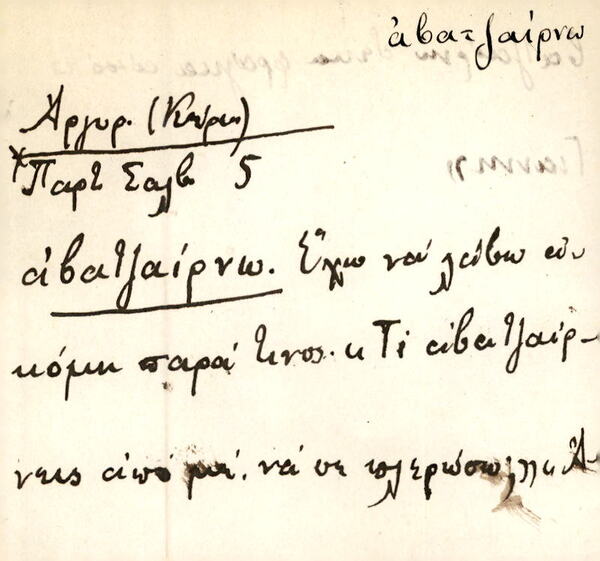 ἀβατζαίρνω
Ἀργυρ. (Κύρη)
Παρτ Σαλβ 5
ἀβατζαίρνω. Ἔχω νά λάβω ἀ
κόμη παρά τινος. κ Τί ἀβατζαίρ-
νεις ἀπό μέ, νά σε πλερώσω;